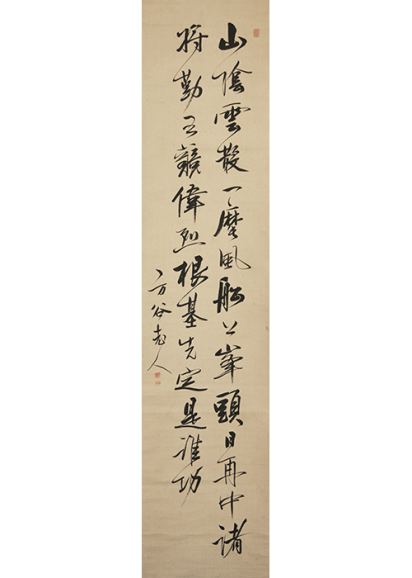 山陰雲散一麾風船上峯頭日再中諸
将勤王競偉烈根基先定是誰功
方谷老人